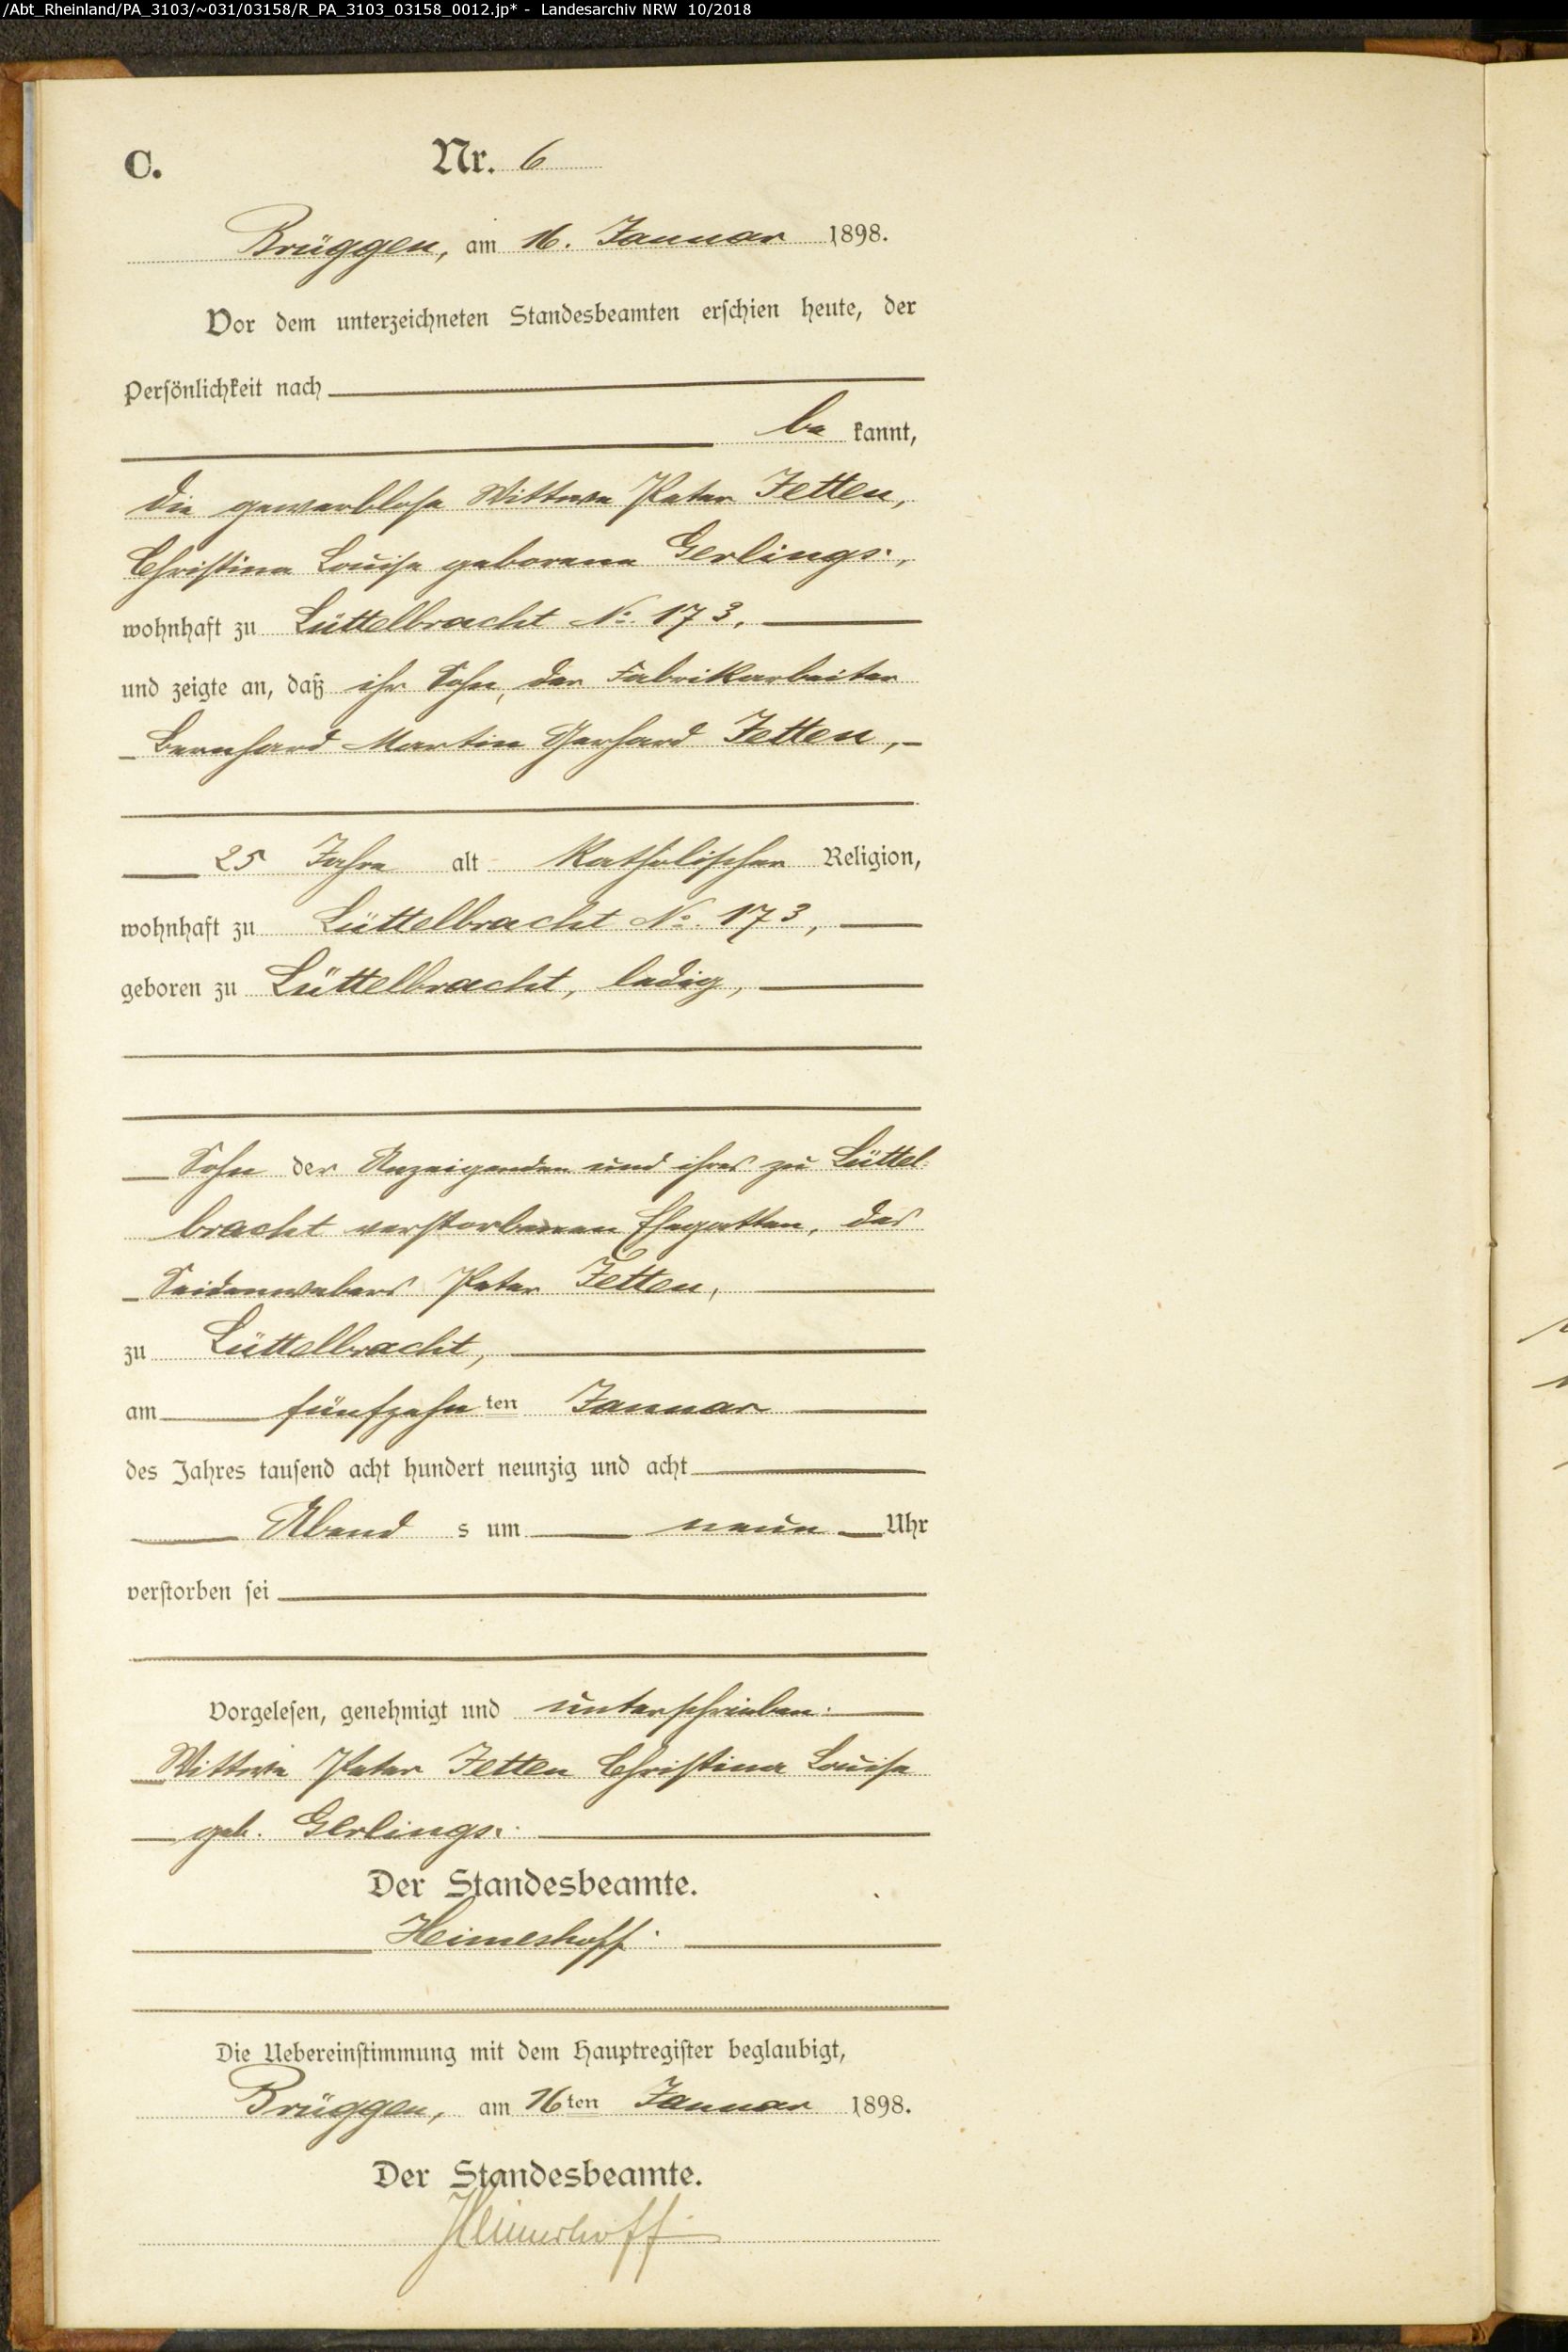 /Abt_Rheinland/PA_3103/~031/03158/R_PA_3103_03158_0012.jp* - Landesarchiv NRW 10/2018
C. Nr. 6
Brüggen, am 16. Januar 1898.
Vor dem unterzeichneten Standesbeamten erschien heute, der
Persönlichkeit nach
be kannt,
die gewerblose Wittwe Peter Jetten,
Christina Louise geborene Gerlings.,
wohnhaft zu Lüttelbracht No. 173,
und zeigte an, daß ihr Sohn, der Fabrikarbeiter
Bernhard Martin Gerhard Jetten,
25 Jahre alt Katholischer Religion,
wohnhaft zu Lüttelbracht No. 173,
geboren zu Lüttelbracht, ledig,
Sohn der Anzeigenden und ihres zu Lüttel-
bracht verstorbenen Ehegatten, des
Seidenwebers Peter Jetten,
zu Lüttelbracht,
am fünfzehn ten Januar
des Jahres tausend acht hundert neunzig und acht
Abend s um neun Uhr
verstorben sei
Vorgelesen, genehmigt und unterschrieben.
Wittwe Peter Jetten Christina Louise
geb. Gerlings.
Der Standesbeamte.
Heimeshoff.
Die Uebereinstimmung mit dem Hauptregister beglaubigt,
Brüggen, am 16ten Januar 1898.
Der Standesbeamte.
Heimeshoff.